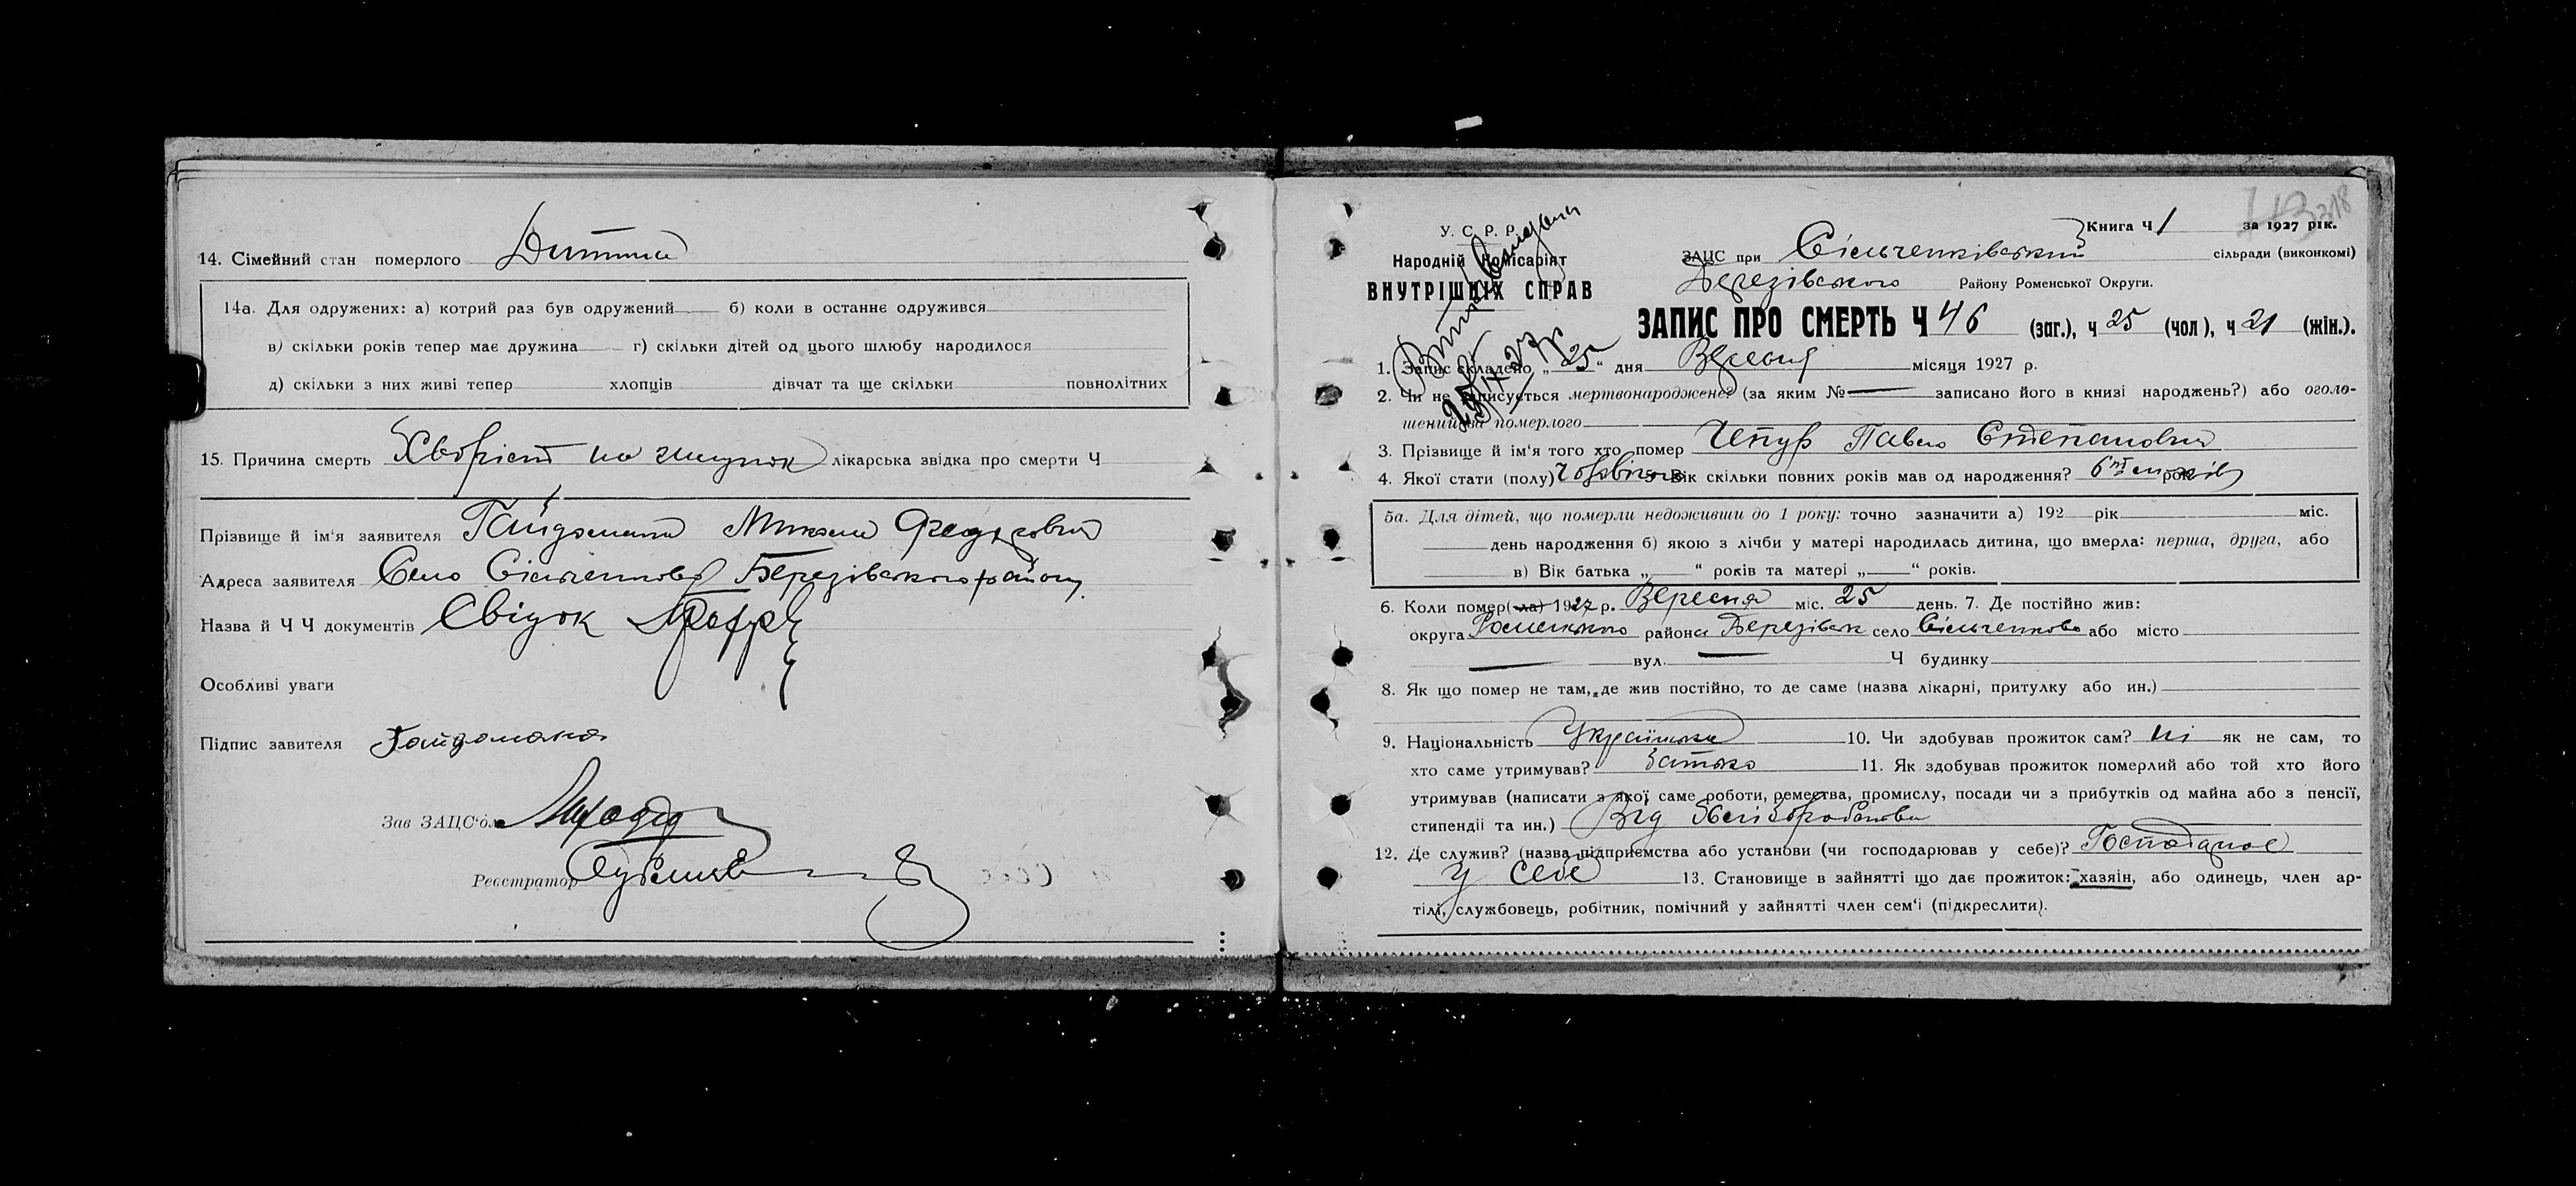 14. Сімейний стан померлого Дитина
14а. Для одружених: а) котрий раз був одружений б) коли в останнє одружився
в) скільки років тепер має дружина г) скільки дітей од цього шлюбу народилося
д) скільки з них живі тепер хлопців дівчат та ще скільки повнолітних
15. Причина смерть Хворість на шлунок лікарська звідка про смерти Ч
Прізвище й ім'я заявителя Гайдамака Микола Федорович
Адреса заявителя Село Сільченково Березівського району.
Назва й Ч Ч документів Свідок
Особливі уваги
Підпис завителя Гайдамака
Зав ЗАЦС'ом
Реєстратор
У. С. Р. Р.
Народній Комісаріят
ВНУТРІШНІХ СПРАВ
Книга Ч 1 за 1927 рік.
ЗАЦС при Сільченківський сільради (виконкомі)
Березівського Району Роменської Округи.
ЗАПИС ПРО СМЕРТЬ Ч 46 (заг.), ч 25 (чол), ч 21 (жін.).
1. Запис складено „25“ дня Вересня місяця 1927 р.
2. Чи не записується мертвонароджене? (за яким № записано його в книзі народжень?) або оголо-
шений за померлого
3. Прізвище й ім'я того хто помер Чепур Павло Степанович
4. Якої стати (полу) Чоловіча 5. Вік скільки повних років мав од народження? 6 рок
5а. Для дітей, що померли недоживши до 1 року: точно зазначити а) 192 рік міс.
день народження б) якою з лічби у матері народилась дитина, що вмерла: перша, друга, або
в) Вік батька „ “ років та матері „ “ років.
6. Коли помер(-ла) 1927 р. Вересня міс. 25 день. 7. Де постійно жив:
округа Роменського района Березівськ село Сільченково або місто
вул. Ч будинку
8. Як що помер не там, де жив постійно, то де саме (назва лікарні, притулку або ин.)
9. Національність Українська 10. Чи здобував прожиток сам? ні як не сам, то
хто саме утримував? Батько 11. Як здобував прожиток померлий або той хто його
утримував (написати з якої саме роботи, ремества, промислу, посади чи з прибутків од майна або з пенсії,
стипендії та ин.) Від Хліборобства
12. Де служив? (назва підприємства або установи (чи господарював у себе)? Господарює
у себе 13. Становище в зайнятті що дає прожиток: хазяін, або одинець, член ар-
тілі, службовець, робітник, помічний у зайнятті член сем'і (підкреслити).